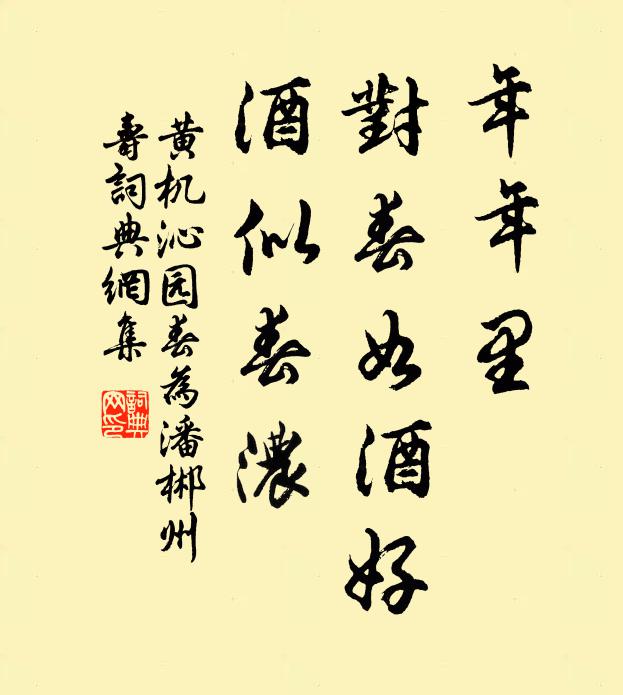 年年里
對春如酒好
酒似春濃
黄机沁园春為潘郴州
壽詞典網集
詞典
网印